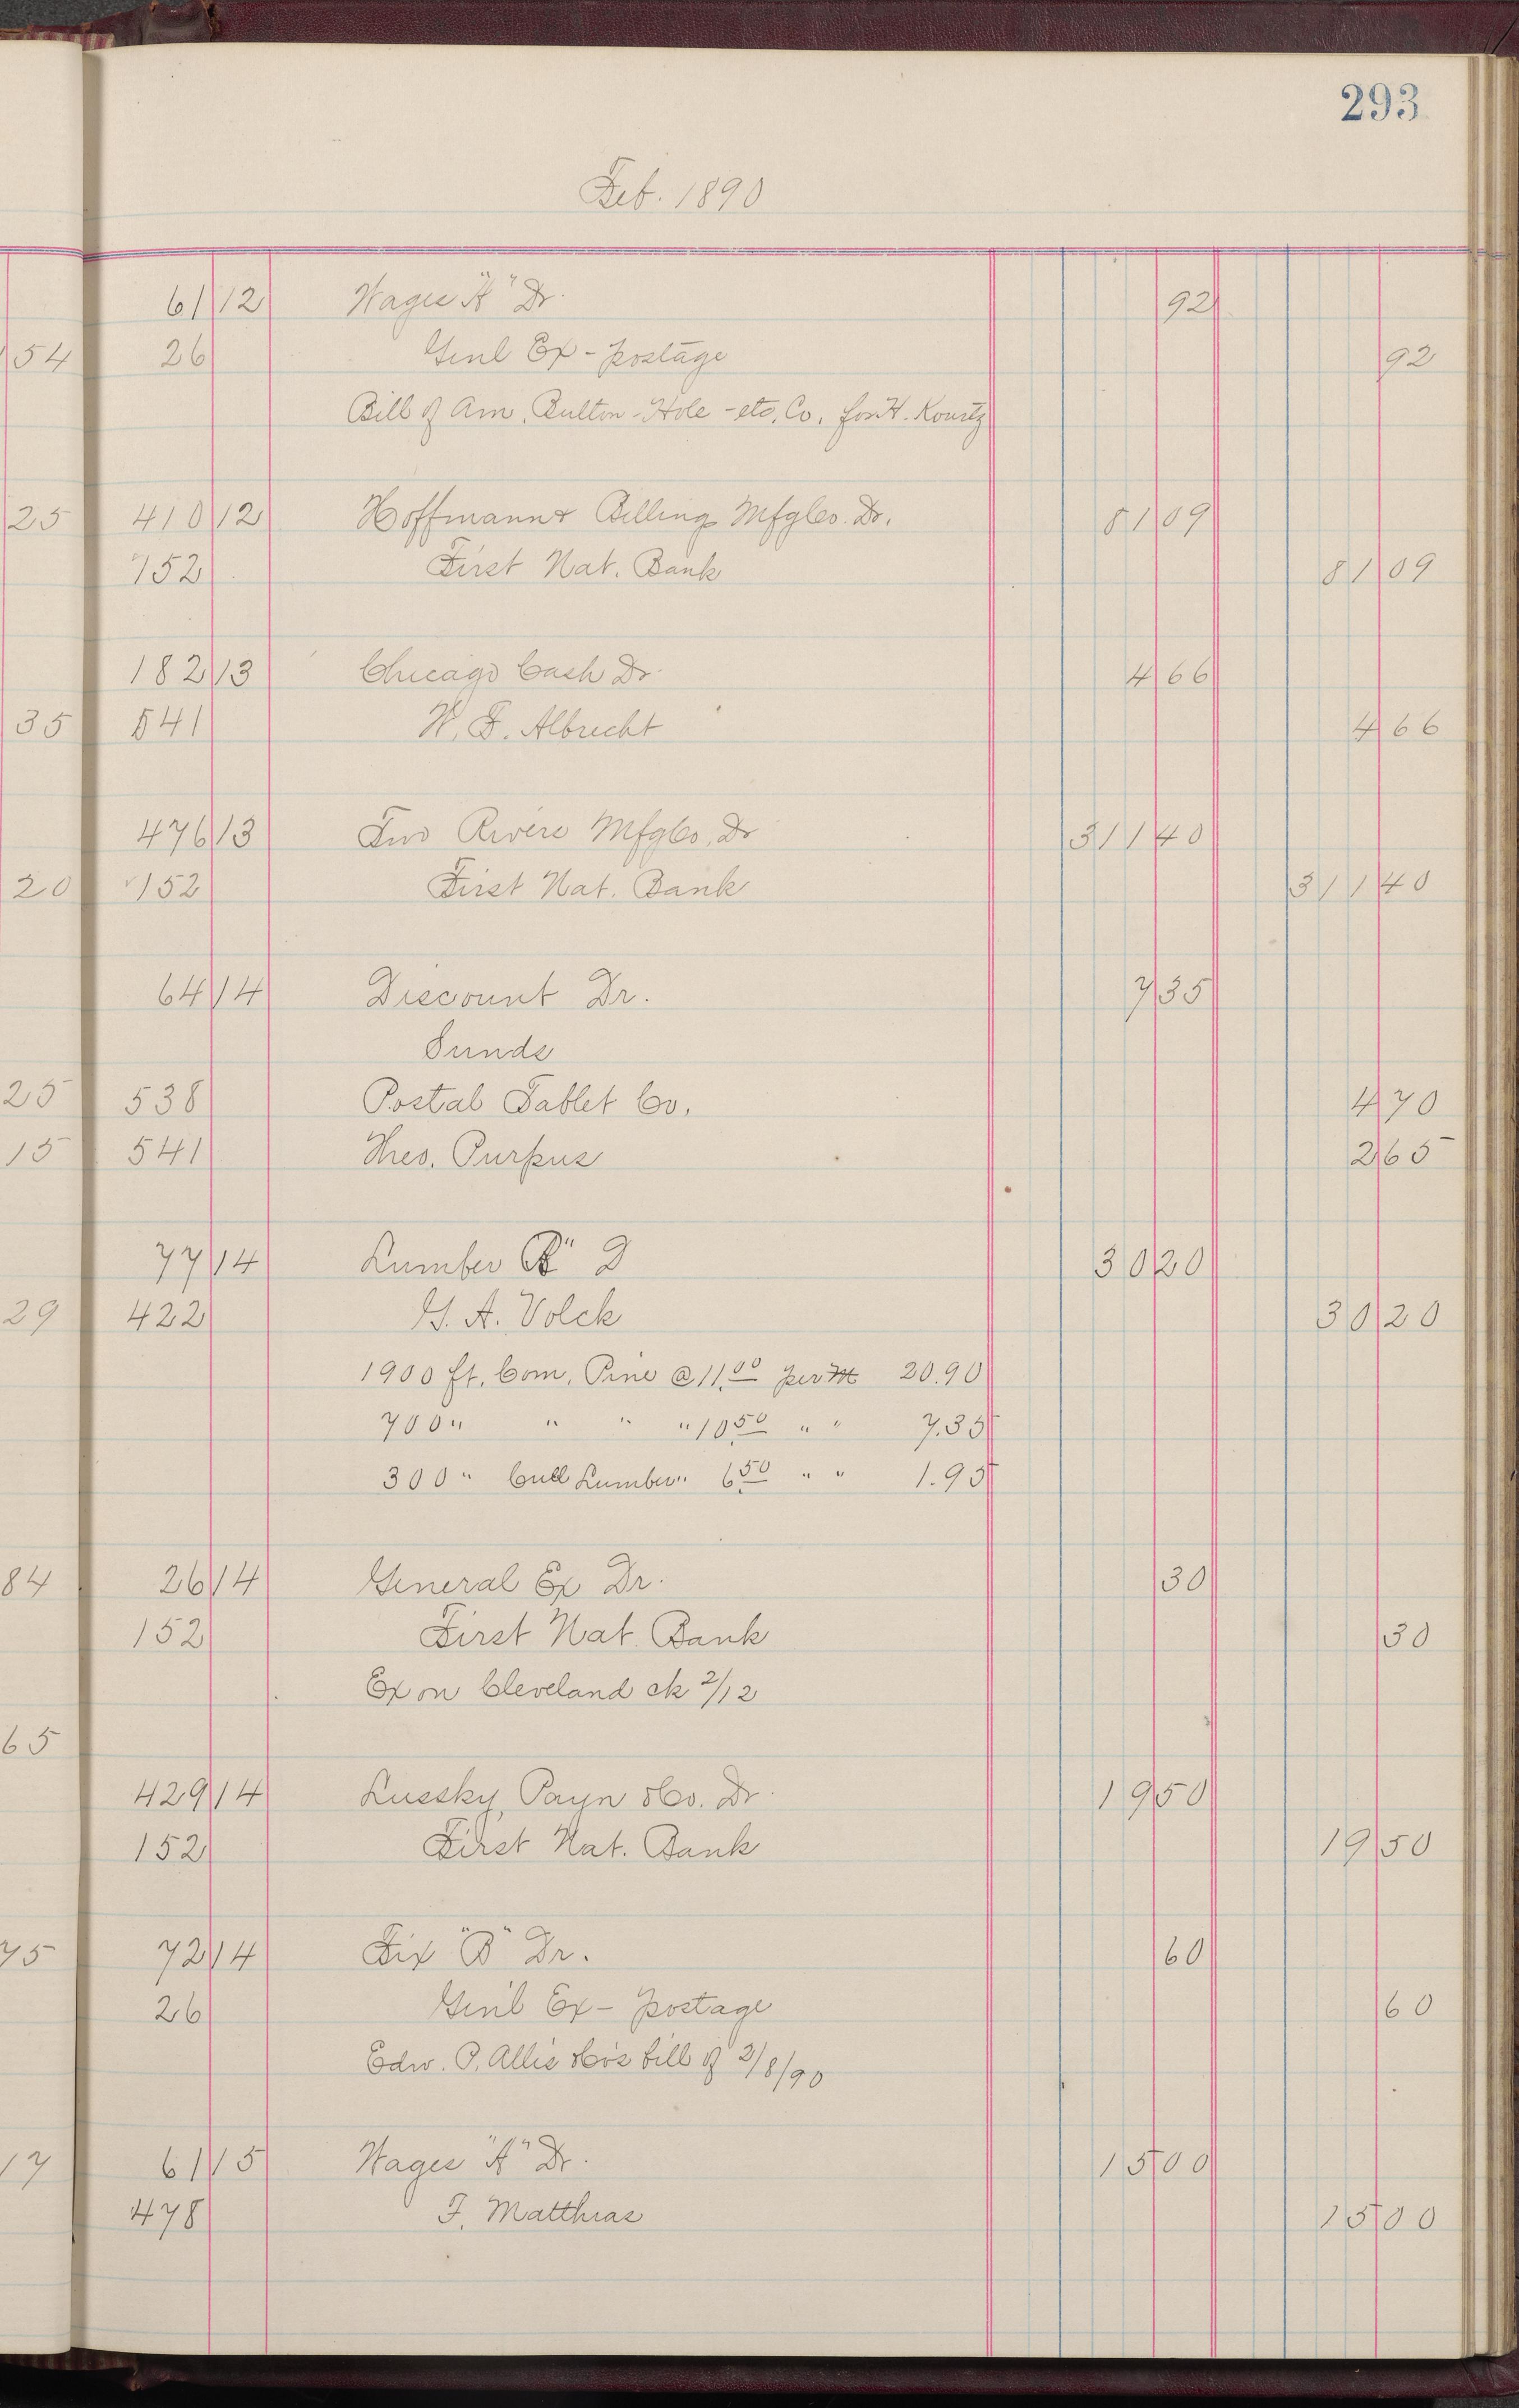 293
Feb. 1890
61 12 Wages "A" Dr. 92
54 26 Genl Ex - postage 92
Bill of Am. Button-Hole - etc. Co. for H. Kountz
25 410 12 Hoffmann & Billings Mfg Co. Dr. 81 09
152 First Nat. Bank 81 09
182 13 Chicago Cash Dr. 4 66
35 541 W. F. Albrecht 4 66
476 13 Two Rivers Mfg Co. Dr 311 40
20 152 First Nat. Bank 311 40
64 14 Discount Dr. 7 35
Sunds
25 538 Postal Tablet Co. 4 70
15 541 Theo. Purpus 2 65
77 14 Lumber "B" D 30 20
29 422 G. A. Volck 30 20
1900 ft. Com. Pine @ 11.00 per M 20.90
700 " " " " 10.50 " " 7.35
300 " Cull Lumber " 6.50 " " 1.95
84 26 14 General Ex Dr. 30
152 First Nat. Bank 30
Ex on Cleveland ck 2/12
65
429 14 Lussky, Payn & Co. Dr. 19 50
152 First Nat. Bank 19 50
75 72 14 Fix "B" Dr. 60
26 Gen'l Ex - postage 60
Edw. P. Allis & Co's bill of 2/8/90
17 61 15 Wages "A" Dr. 15 00
478 F. Matthias 15 00